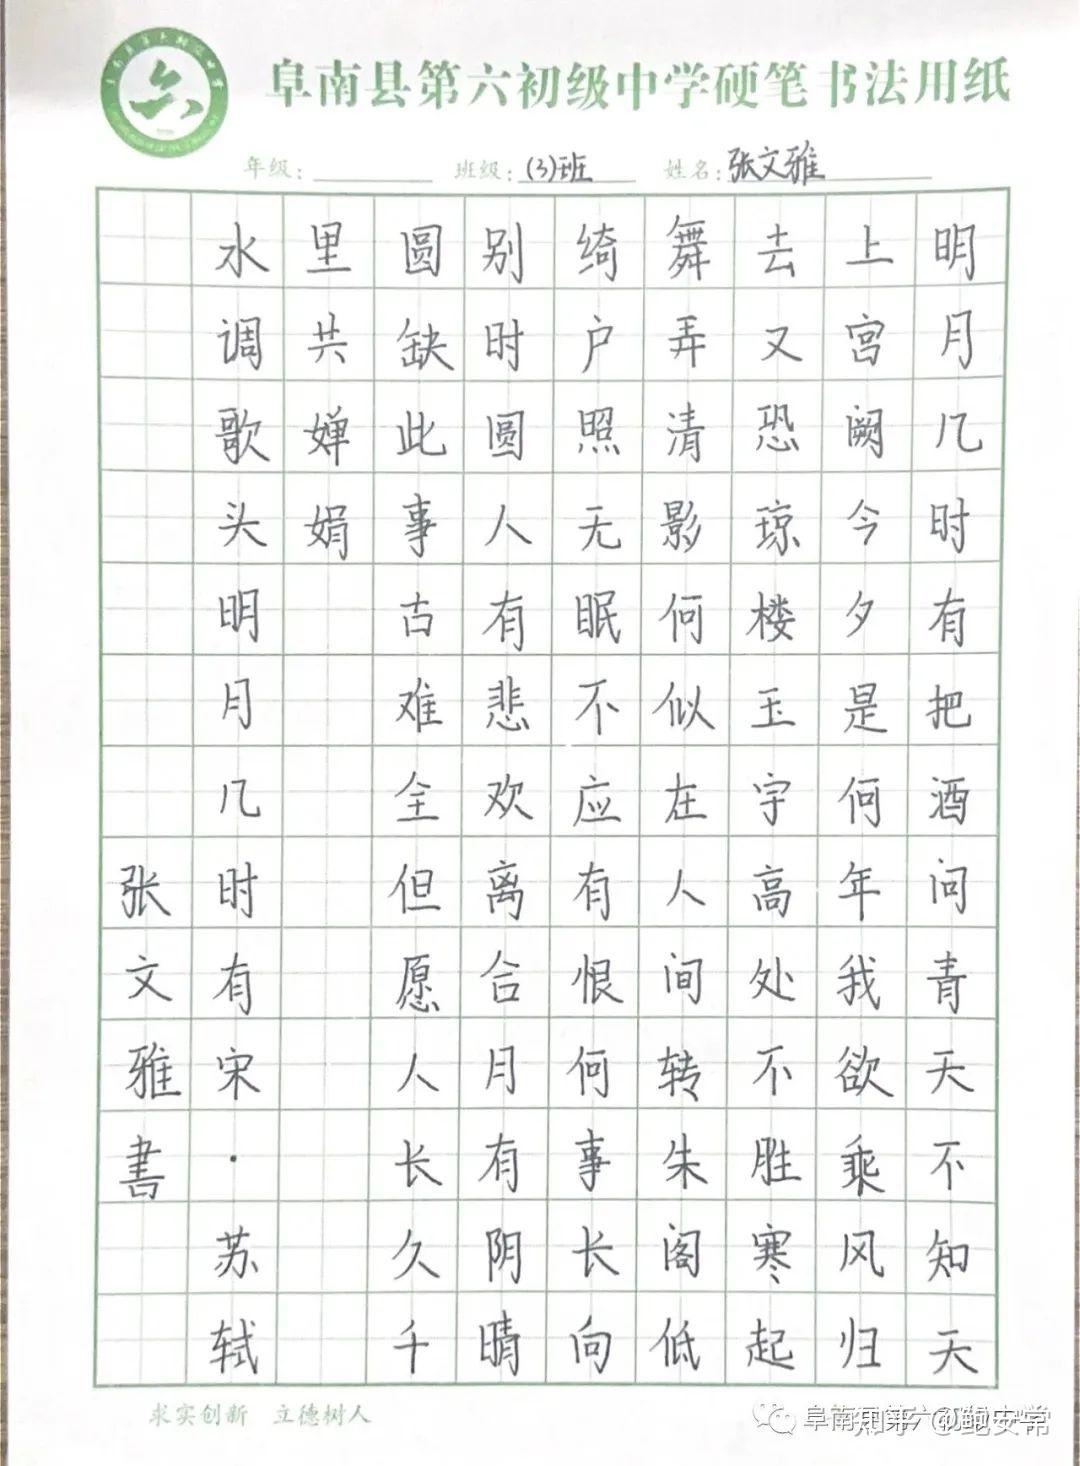 阜南县第六初级中学硬笔书法用纸
年级: 班级:(3)班 姓名:张文雅
明月几时有把酒问青天不知天
上宫阙今夕是何年我欲乘风归
去又恐琼楼玉宇高处不胜寒起
舞弄清影何似在人间转朱阁低
绮户照无眠不应有恨何事长向
别时圆人有悲欢离合月有阴晴
圆缺此事古难全但愿人长久千
里共婵娟
水调歌头明月几时有宋·苏轼
张文雅書
求实创新 立德树人